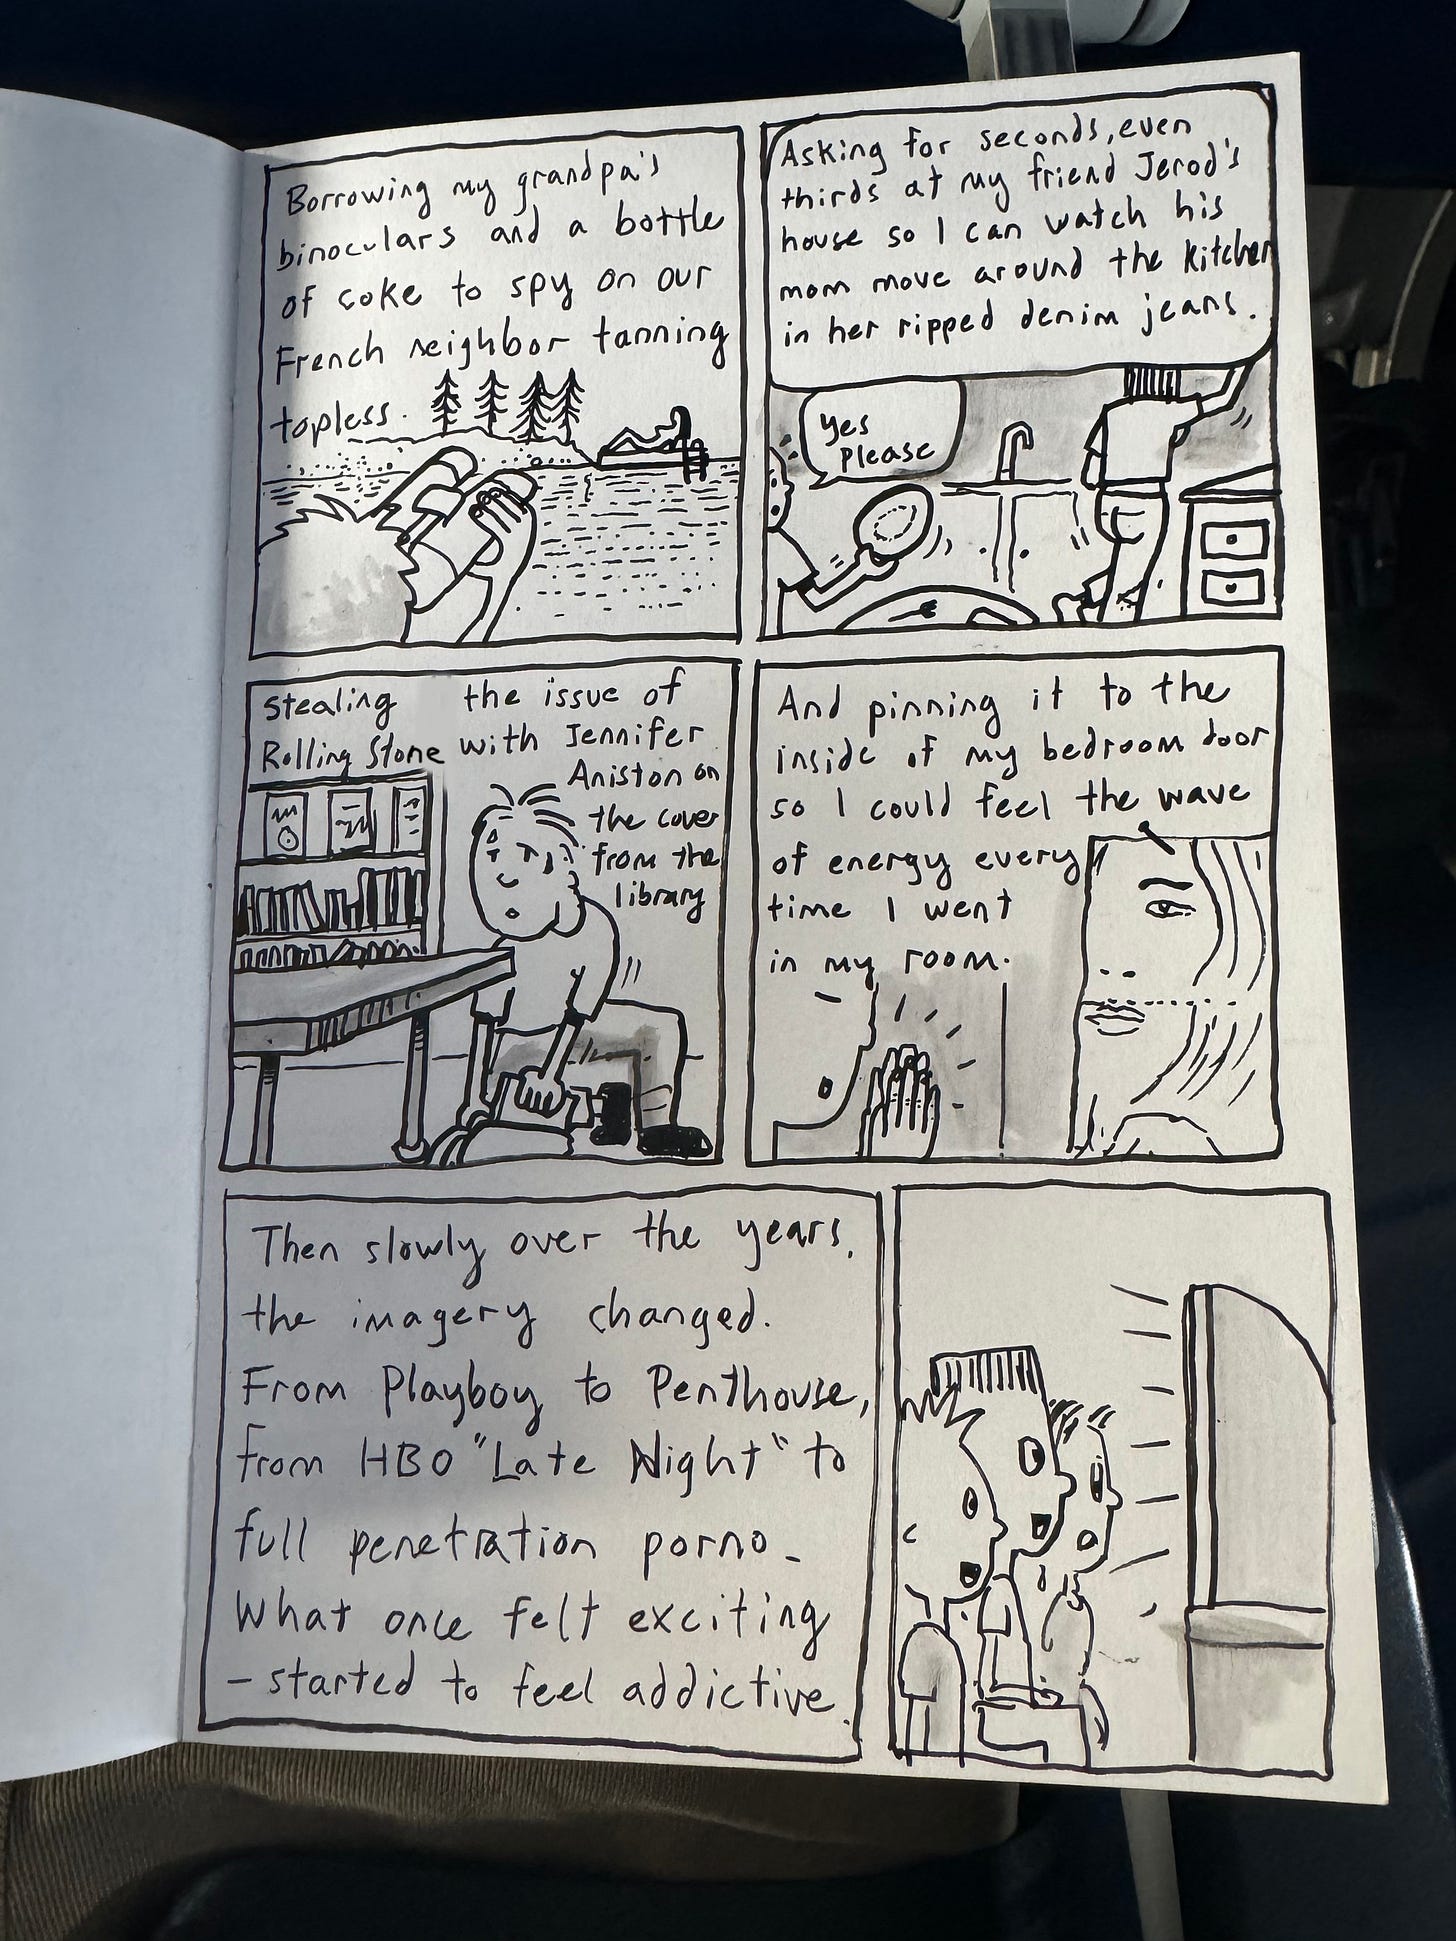 Borrowing my grandpa's
binoculars and a bottle
of coke to spy on our
French neighbor tanning
topless.
Asking for seconds, even
thirds at my friend Jerod's
house so I can watch his
mom move around the kitchen
in her ripped denim jeans.
Yes
please
Stealing the issue of
Rolling Stone with Jennifer
Aniston on
the cover
from the
library
And pinning it to the
inside of my bedroom door
so I could feel the wave
of energy every
time I went
in my room.
Then slowly over the years,
the imagery changed.
From Playboy to Penthouse,
from HBO "Late Night" to
full penetration porno.
What once felt exciting
- started to feel addictive.